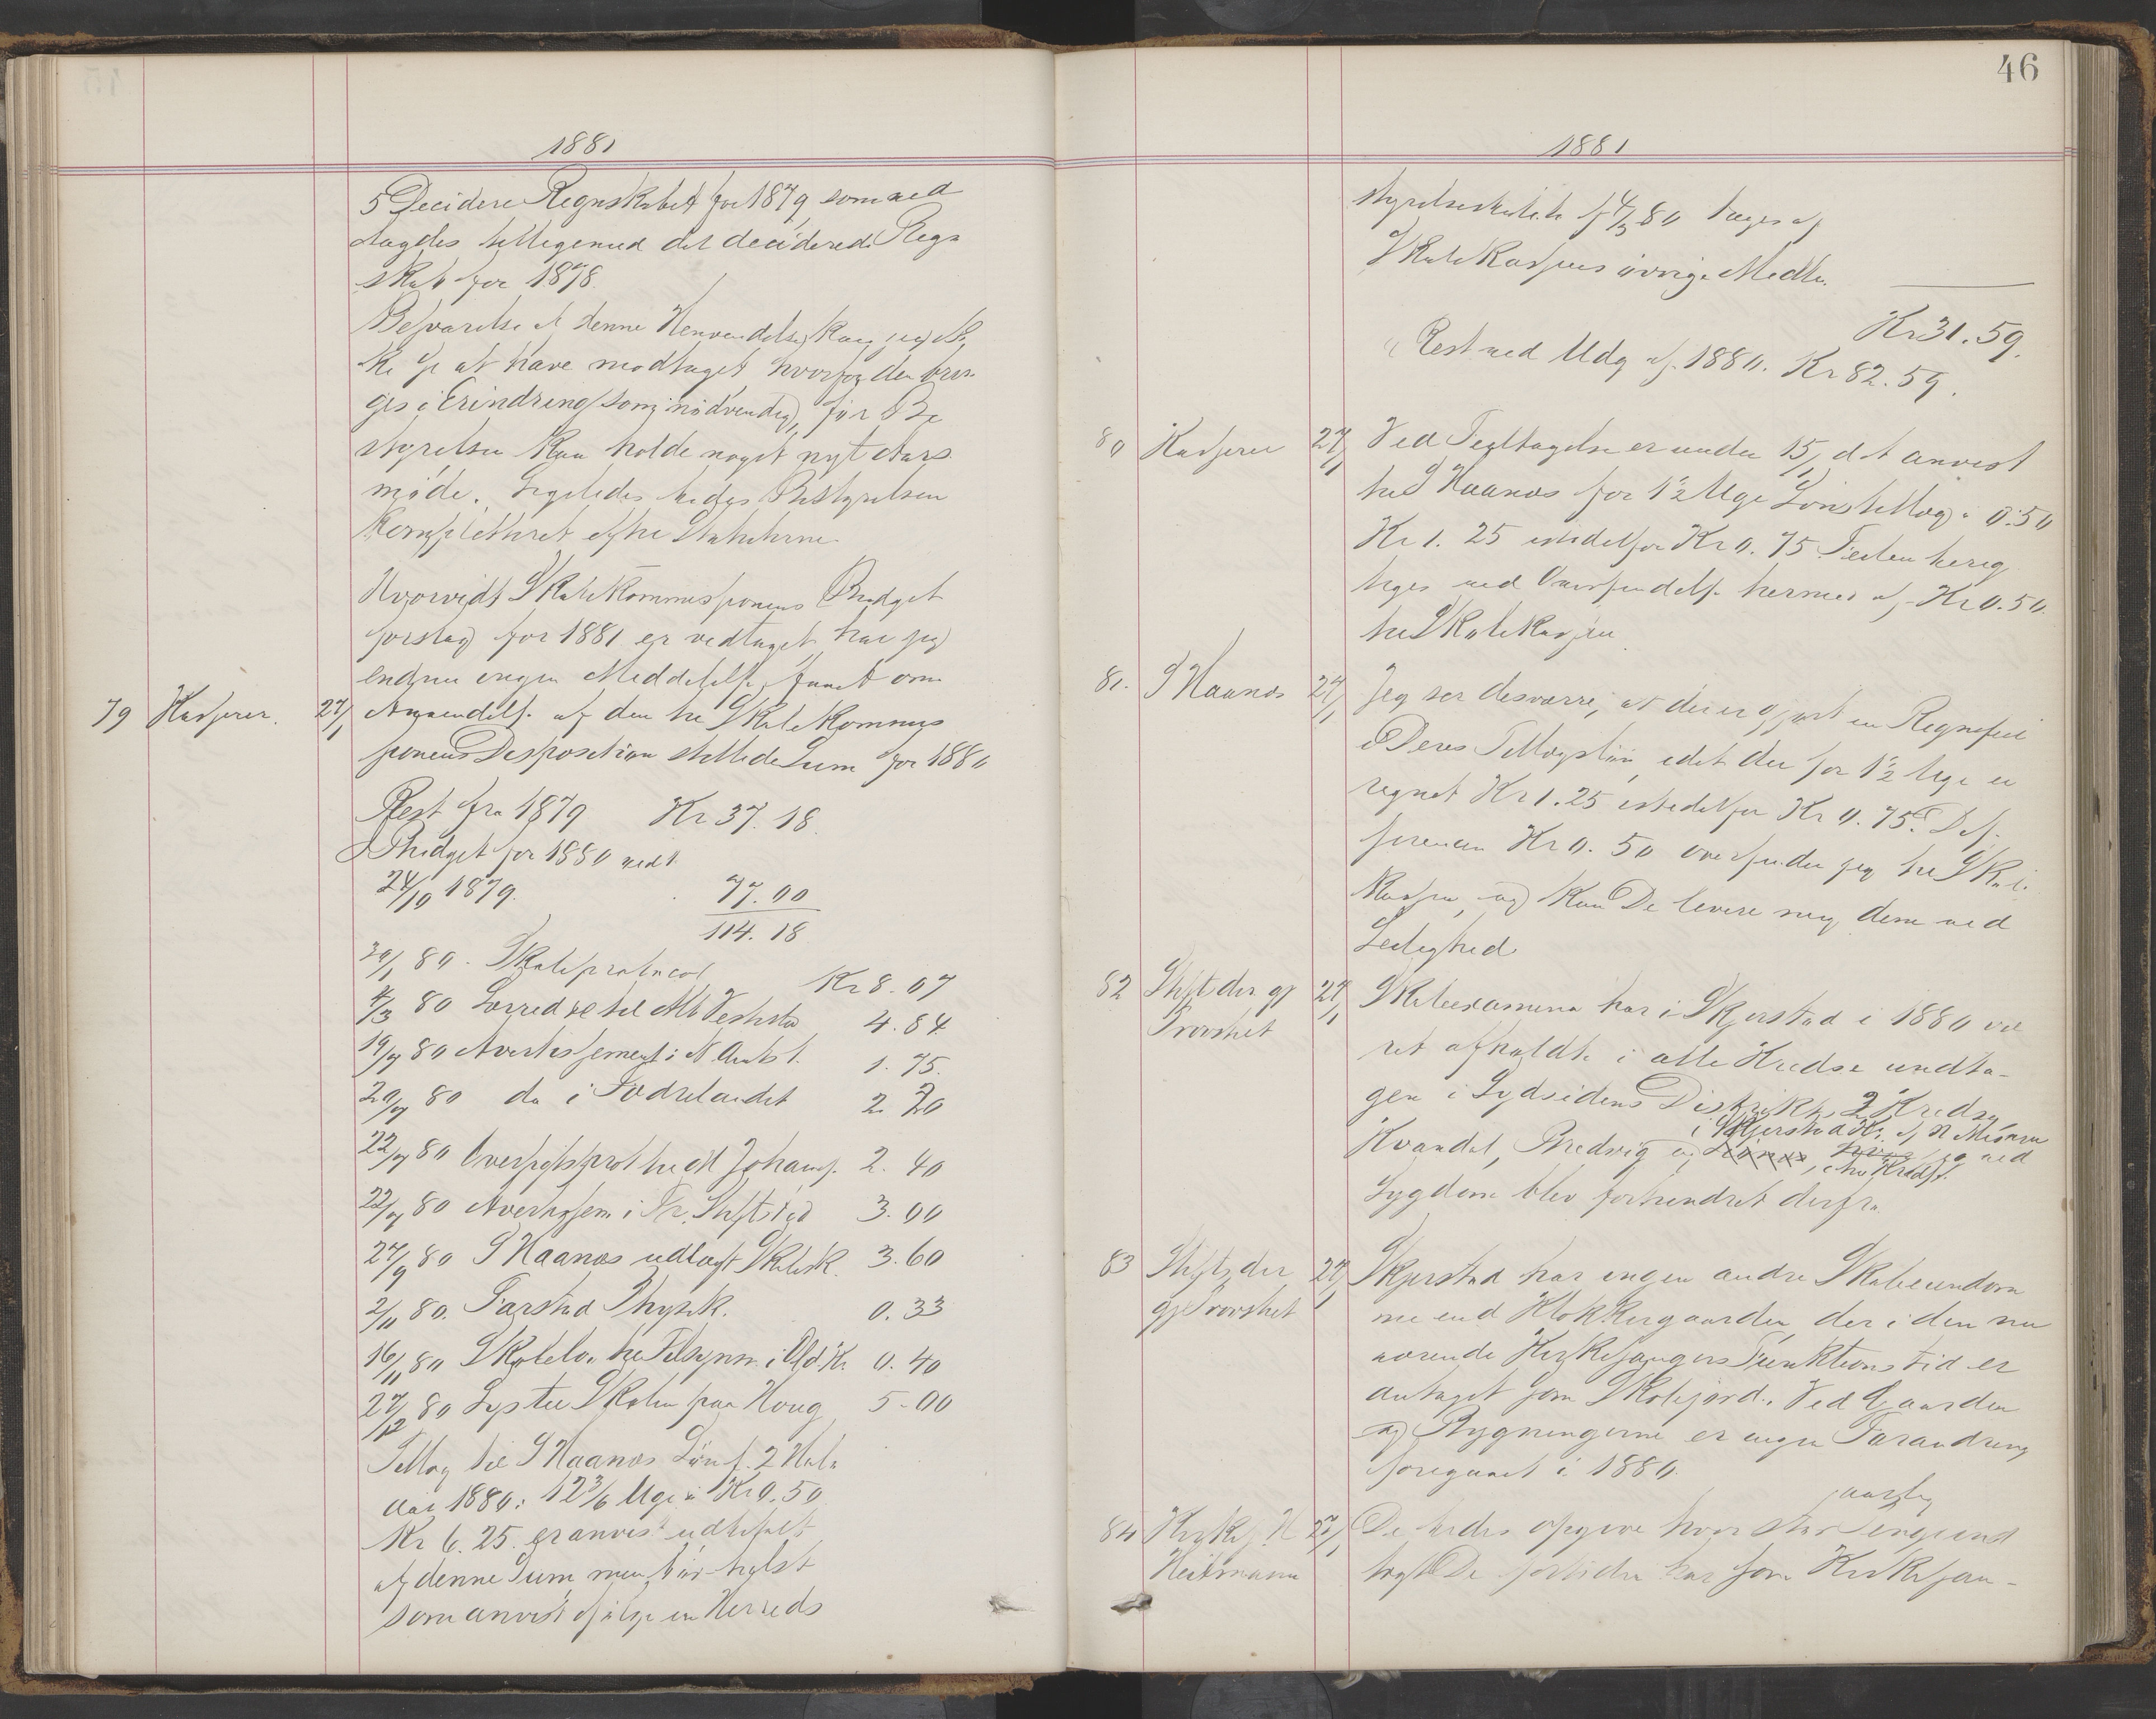 1881
5 Decidere Regnskabet for 1879, som ved
lagdes tilligemed det deciderede Regn
skab for 1878.
Besvarelse af denne Henvendelse kan jeg ik
ke se at have modtaget, hvorfor den brin
ges i Erindring som nødvendig, før Be
styrelsen kan holde noget nyt Aars
møde. Ligeledes bedes Bestyrelsen
kompletteret efter Statuterne.
Hvorvidt Skolekommissionens Budget
forslag for 1881 er vedtaget har jeg
endnu ingen Meddelelse faaet om
79 Kasserer. 27/1 Anvendelse af den til Skolekommis
sionens Disposition stillede Sum for 1880
Rest fra 1879 Kr 37.18.
Budget for 1880 vedt.
24/10 1879. 77.00
114.18
/1 80. Skoleprotocol Kr 8.07
4/3 80 til 4.84
19/7 80 Avertissement i N. Amtst. 1.75.
20/7 80 do i Nordlandet 2.20
22/7 80 Johans. 2.40
22/7 80 Avertissem. i Tr. Stiftstid 3.00
27/9 80 S Haanos udlagt Skolesk. 3.60
2/11 80. 0.33
16/11 80 Skolelov til Tilsynm. i Kr. 0.40
27/12 80 Lys til Skolen paa Houg 5.00
Tillæg til S Haanos Løn f. 2 Halv
aar 1880: 12 3/6 Uge à Kr 0.50
Kr 6.25. er anvist udbetalt
af denne Sum, men bør helst
som anvist ifølge en Herreds
46
1881
styrelsesbeslut. af 4/3 80 tages af
Skolekassens øvrige Midler.
Kr 31.59.
Rest ved Udg. af 1880. Kr 82.59.
80 Kasserer 27/1 Ved Feiltagelse er under 15/1 d. A. anvist
til S Haanos for 1½ Uge Lønstillæg à 0.50
Kr 1.25 istedetfor Kr 0.75. Feilen berig
tiges ved Oversendelse hermed af Kr 0.50.
til Skolekassen.
81. S Haanos 27/1 Jeg ser desværre, at der er gjort en Regnefeil
i Deres Tillægsløn, idet der for 1½ Uge er
regnet Kr 1.25 istedetfor Kr 0.75. Dif
ferencen Kr 0.50 oversender jeg til Skole
kassen, og kan De levere mig dem ved
Leilighed
82 Stiftsdir. gj Provstiet 27/1 Skoleexamina har i Skjerstad i 1880 væ
ret afholdte i alle Kredse undta-
gen i Sydsidens Distrikts 2 Kredse
i Skjerstad
Kvandal, Bredvig og ved
Sygdom blev forhindret derfra.
83 Stiftsdir. gj Provstiet 27/1 Skjerstad har ingen andre Skoleeiendom
me end Klokkergaarden, der i den nu
værende Kirkesangers Funktionstid er
antaget som Skolejord. Ved Gaarden
og Bygningerne er ingen Forandring
foregaaet i 1880.
84 Kirkes. H Heitmann 27/1 De bedes opgive hvor stor aarlig Jengiund
tægt De fortiden har som Kirkesan-